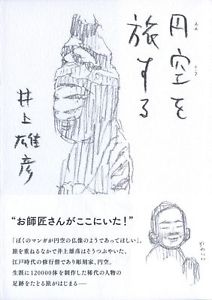 円空を
旅する
井上雄彦
“お師匠さんがここにいた!”
「ぼくのマンガが円空の仏像のようであってほしい」。
旅を重ねるなかで井上雄彦はそうつぶやいた。
江戸時代の修行僧であり彫刻家、円空。
生涯に120000体を制作した稀代の人物の
足跡をたどる旅がはじまる──